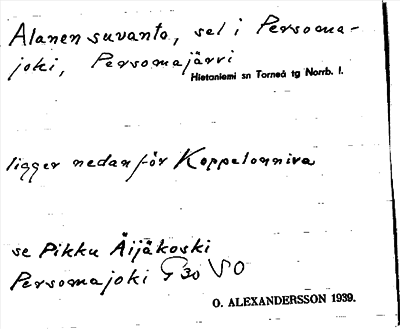 Alanen suvanto, sel i Persoma-
joki, Persomajärvi
Hietaniemi sn Torneå tg Norrb. l.
ligger nedanför Koppelonniva
se Pikku Äijäkoski
Persomajoki G30 VO
O. ALEXANDERSSON 1939.